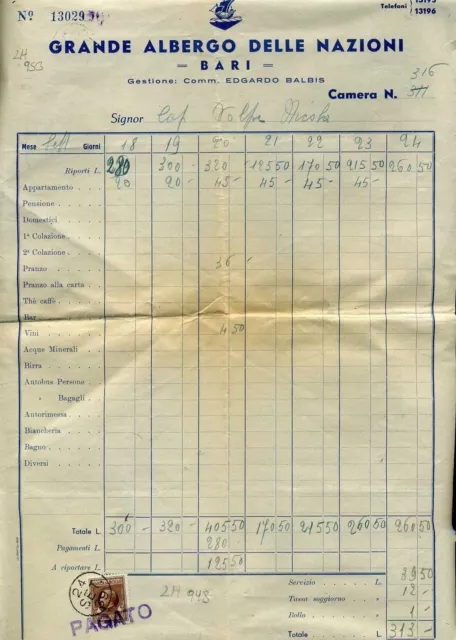 Nº 13029
Telefoni 13195
13196
GRANDE ALBERGO DELLE NAZIONI
= BARI =
Gestione: Comm. EDGARDO BALBIS
316
Camera N. 311
Signor Cap. Volpe Nicola
Mese Sett Giorni 18 19 20 21 22 23 24
Riporti L. 280 300 - 320 - 125 50 170 50 215 50 260 50
Appartamento 20 20 - 45 - 45 - 45 - 45 -
Pensione
Domestici
1ª Colazione
2ª Colazione
Pranzo 36 -
Pranzo alla carta
Thè caffè
Bar
Vini 4 50
Acque Minerali
Birra
Autobus Persone
" Bagagli
Autorimessa
Biancheria
Bagno
Diversi
Totale L. 300 - 320 - 405 50 170 50 215 50 260 50 260 50
Pagamenti L. 280 -
A riportare L. 125 50
Servizio L. 39 50
Tassa soggiorno " 12 -
Bollo " 1 -
Totale 313 -
PAGATO